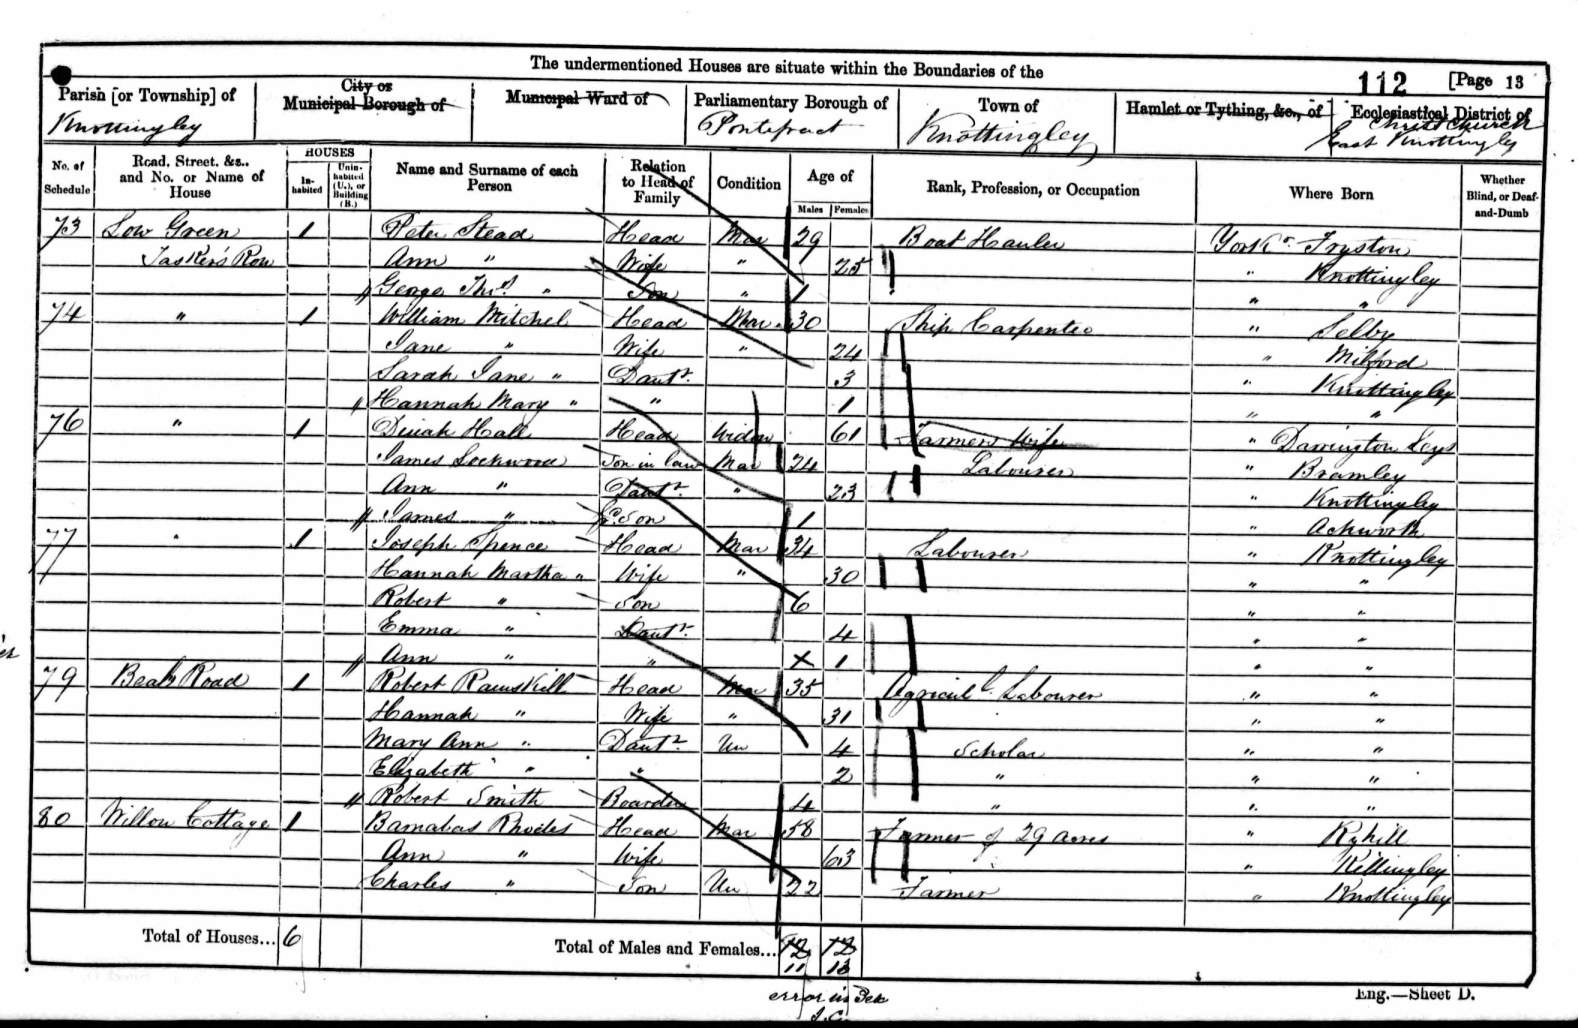 The undermentioned Houses are situate within the Boundaries of the
112 [Page 13
Parish [or Township] of Knottingley
City or Municipal Borough of
Municipal Ward of
Parliamentary Borough of Pontefract
Town of Knottingley
Hamlet or Tything, &c., of
Ecclesiastical District of Christ Church East Knottingley
No. of Schedule
Road, Street, &c., and No. or Name of House
HOUSES
In-habited
Unin-habited (U.), or Building (B.)
Name and Surname of each Person
Relation to Head of Family
Condition
Age of
Males Females
Rank, Profession, or Occupation
Where Born
Whether Blind, or Deaf-and-Dumb
73 Low Green 1 Peter Stead Head Mar 29 Boat Hauler York r. Fryston
Tasker's Row Ann " Wife " 25 " Knottingley
George Thos. " Son " 1 " "
74 " 1 William Mitchel Head Mar. 30 Ship Carpenter " Selby
Jane " Wife " 24 " Milford
Sarah Jane " Dautr. 3 " Knottingley
Hannah Mary " " 1 " "
76 " 1 Dinah Hall Head Widow 61 Farmers Wife " Darrington Leys
James Lockwood Son in law Mar 24 Labourer " Bramley
Ann " Dautr. " 23 " Knottingley
James " Gd. Son 1 " Ackworth
77 " 1 Joseph Spence Head Mar 34 Labourer " Knottingley
Hannah Martha " Wife " 30 " "
Robert " Son 6 " "
Emma " Dautr. 4 " "
Ann " " X 1 " "
79 Beal Road 1 Robert Ramskill Head Mar 35 Agricul. Labourer " "
Hannah " Wife " 31 " "
Mary Ann " Dautr. Un 4 Scholar " "
Elizabeth " " 2 " " "
Robert Smith Boarder 4 " " "
80 Willow Cottage 1 Barnabas Rhodes Head Mar 58 Farmer of 29 acres " Ryhill
Ann " Wife 63 " Kellingley
Charles " Son Un 22 Farmer " Knottingley
Total of Houses... 6
Total of Males and Females... 12 12
11 13
error in
Eng.—Sheet D.